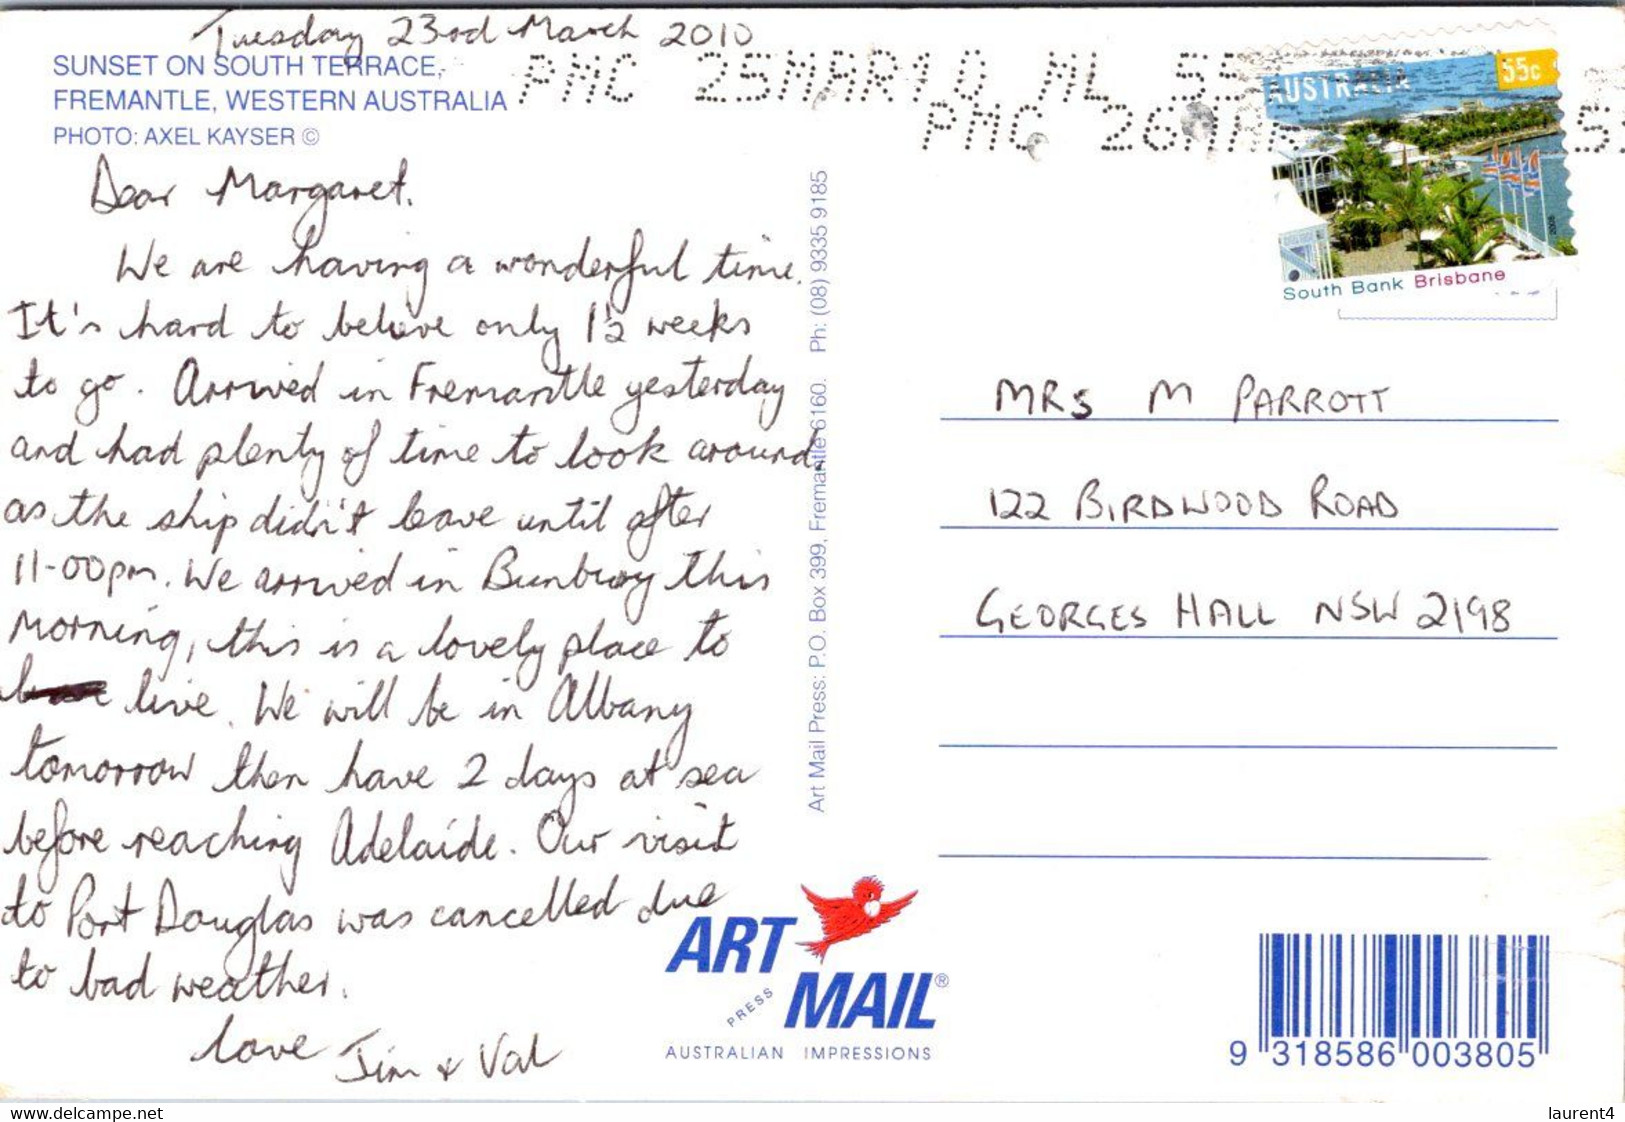 Tuesday 23rd March 2010
SUNSET ON SOUTH TERRACE,
FREMANTLE, WESTERN AUSTRALIA
PHOTO: AXEL KAYSER ©
Dear Margaret.
We are having a wonderful time.
It's hard to believe only 1½ weeks
to go. Arrived in Fremantle yesterday
and had plenty of time to look around,
as the ship didn't leave until after
11-00pm. We arrived in Bunbury this
morning, this is a lovely place to
live. We will be in Albany
tomorrow then have 2 days at sea
before reaching Adelaide. Our visit
to Port Douglas was cancelled due
to bad weather.
love Jim & Val
Art Mail Press: P.O. Box 399, Fremantle 6160. Ph: (08) 9335 9185
ART
MAIL®
PRESS
AUSTRALIAN IMPRESSIONS
PMC 25MAR10 ML 55
PMC 26MAR
AUSTRALIA
55c
2008
South Bank Brisbane
MRS M PARROTT
122 BIRDWOOD ROAD
GEORGES HALL NSW 2198
9 318586 003805
laurent4
www.delcampe.net